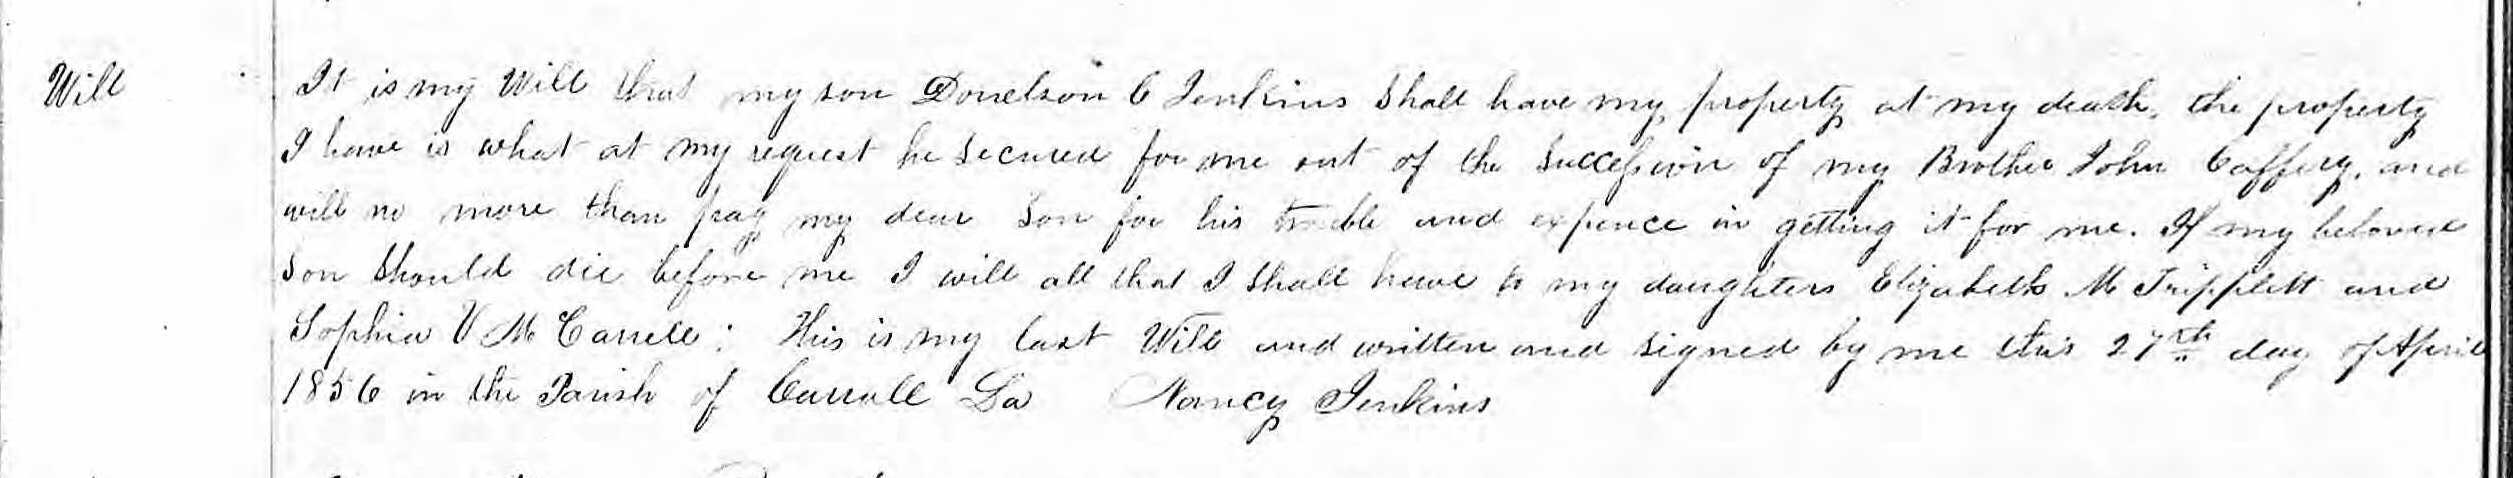 Will
It is my Will that my son Donelson C Jenkins Shall have my property at my death, the property
I have is what at my request he Secured for me out of the Succession of my Brother John Caffery, and
will no more than pay my dear Son for his trouble and expence in getting it for me. If my beloved
Son Should die before me I will all that I Shall have to my daughters Elizabeth M Tripplett and
Sophia V Mc Carrell: This is my last Will and written and signed by me this 27th day of April
1856 in the Parish of Carroll La Nancy Jenkins